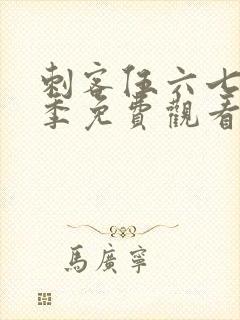 刺客伍六七
季免費觀看
馬廣寧